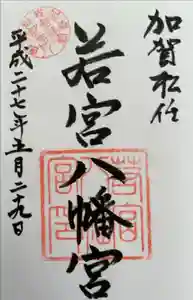 加賀松任
若宮八幡宮
平成二十七年五月二十九日
若宮
宮印